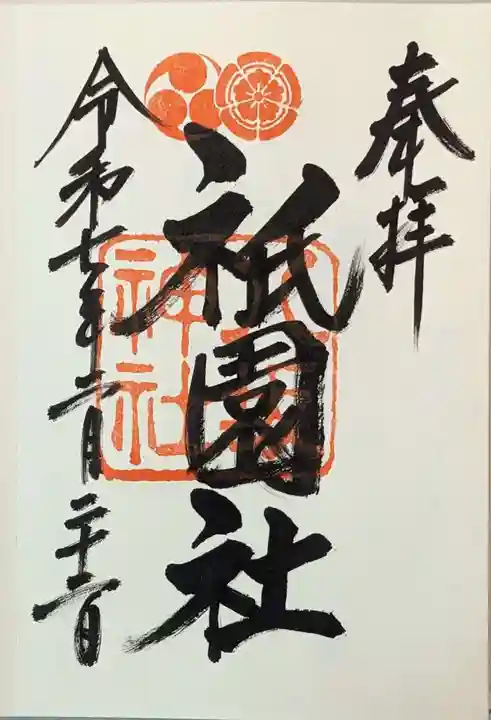 奉拝
祇園社
神社
令和七年二月二十二日